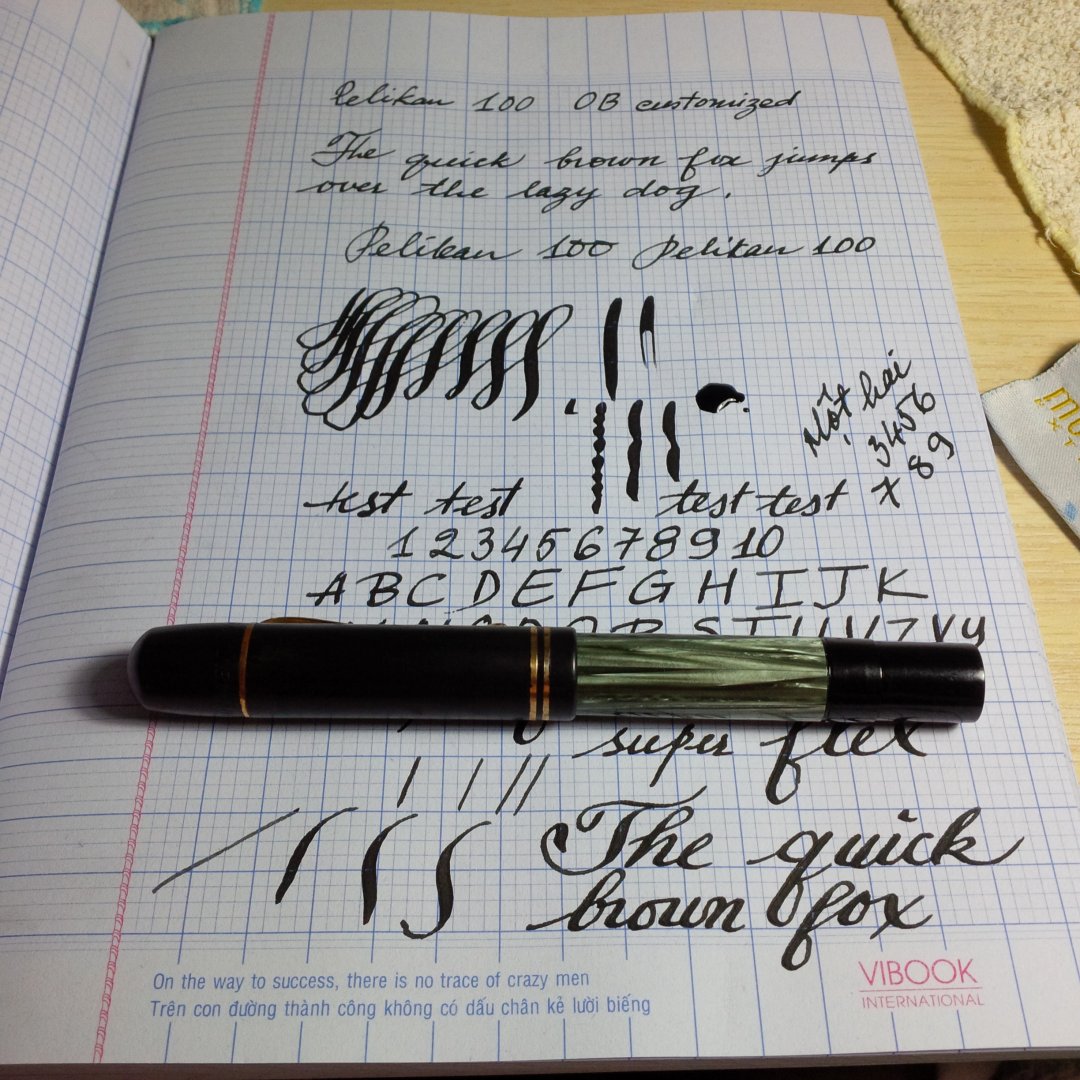 Pelikan 100 OB customized
The quick brown fox jumps
over the lazy dog.
Pelikan 100 Pelikan 100
Một hai
3456
7 89
test test test test
1 2 3 4 5 6 7 8 9 10
A B C D E F G H I J K
super flex
The quick
brown fox
On the way to success, there is no trace of crazy men
Trên con đường thành công không có dấu chân kẻ lười biếng
VIBOOK
INTERNATIONAL